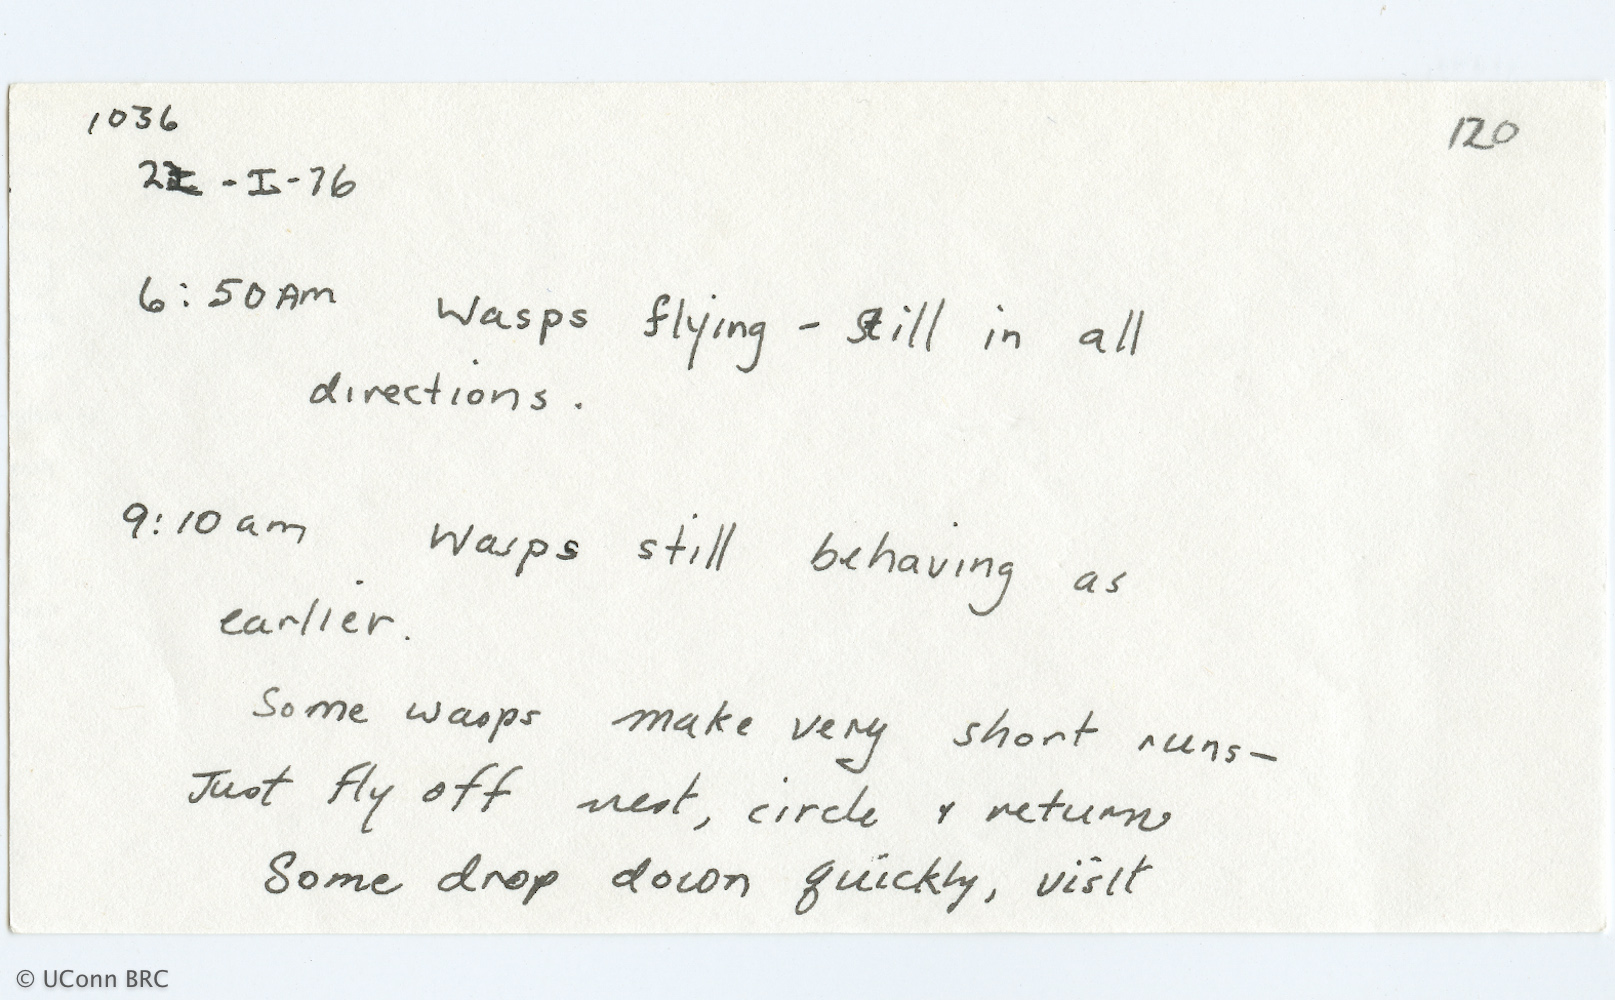 1036
120
-I-76
6:50 Am Wasps flying - still in all
directions.
9:10 am Wasps still behaving as
earlier.
Some wasps make very short runs-
Just fly off nest, circle & return
Some drop down quickly, visit
© UConn BRC